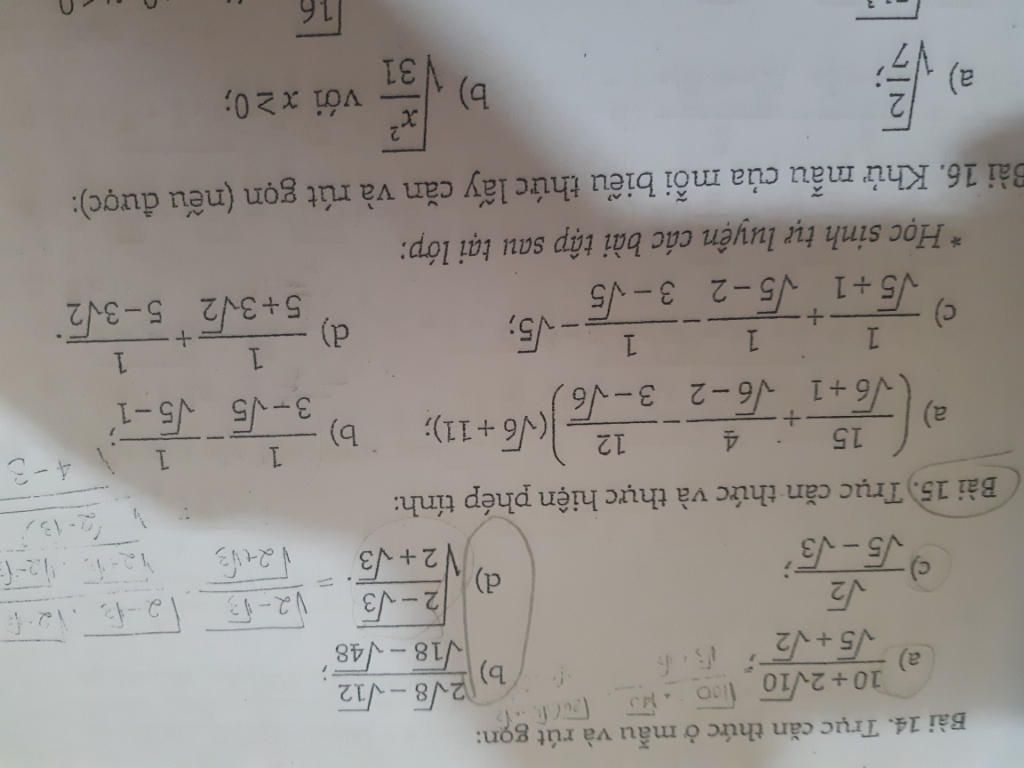 Bài 14. Trục căn thức ở mẫu và rút gọn:
a) (10 + 2√10)/(√5 + √2); b) (2√8 − √12)/(√18 − √48);
c) √2/(√5 − √3); d) √((2 − √3)/(2 + √3)).
= √(2 − √3)/√(2 + √3)
4 − 3
Bài 15. Trục căn thức và thực hiện phép tính:
a) (15/(√6 + 1) + 4/(√6 − 2) − 12/(3 − √6))(√6 + 11); b) 1/(3 − √5) − 1/(√5 − 1);
c) 1/(√5 + 1) + 1/(√5 − 2) − 1/(3 − √5) − √5; d) 1/(5 + 3√2) + 1/(5 − 3√2).
* Học sinh tự luyện các bài tập sau tại lớp:
Bài 16. Khử mẫu của mỗi biểu thức lấy căn và rút gọn (nếu được):
a) √(2/7); b) √(x²/31) với x ≥ 0;
16